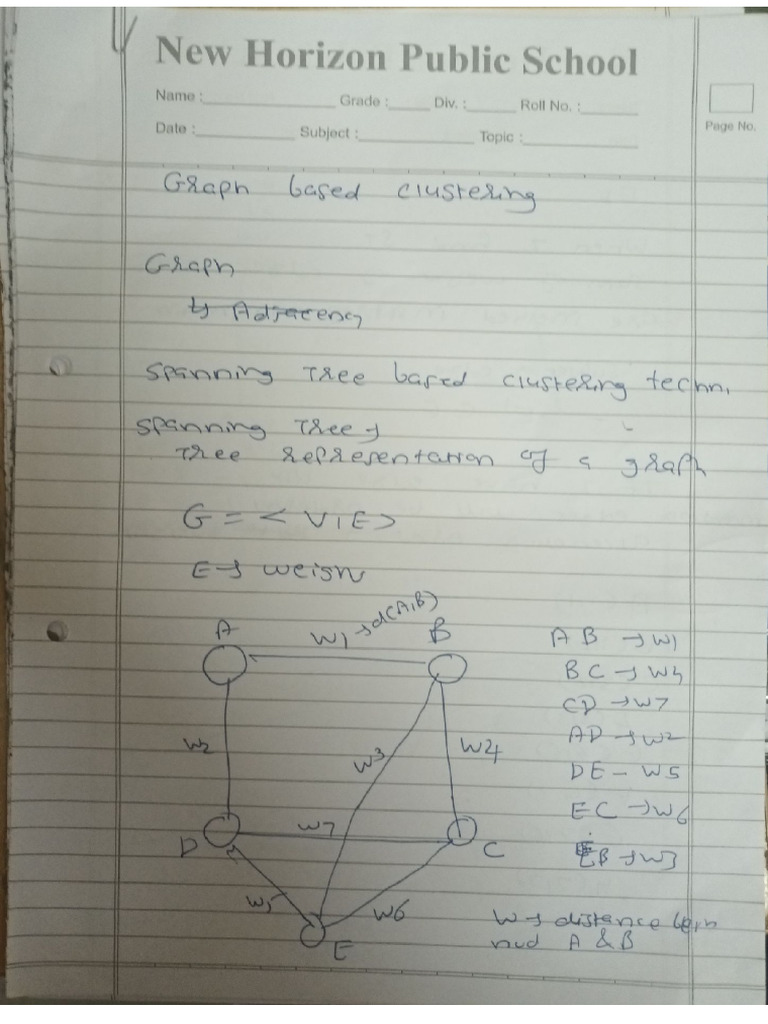 New Horizon Public School
Name : Grade : Div. : Roll No. :
Date : Subject : Topic :
Page No.
Graph based clustering
Graph
↳ Adjacency
Spanning Tree based clustering techn.
Spanning Tree →
Tree representation of a graph
G = < V, E >
E → weight
A W1 → d(A,B) B
W2 W3 W4
D W7 C
W5 W6
E
AB → W1
BC → W4
CD → W7
AD → W2
DE – W5
EC → W6
EB → W3
W → distance
A & B